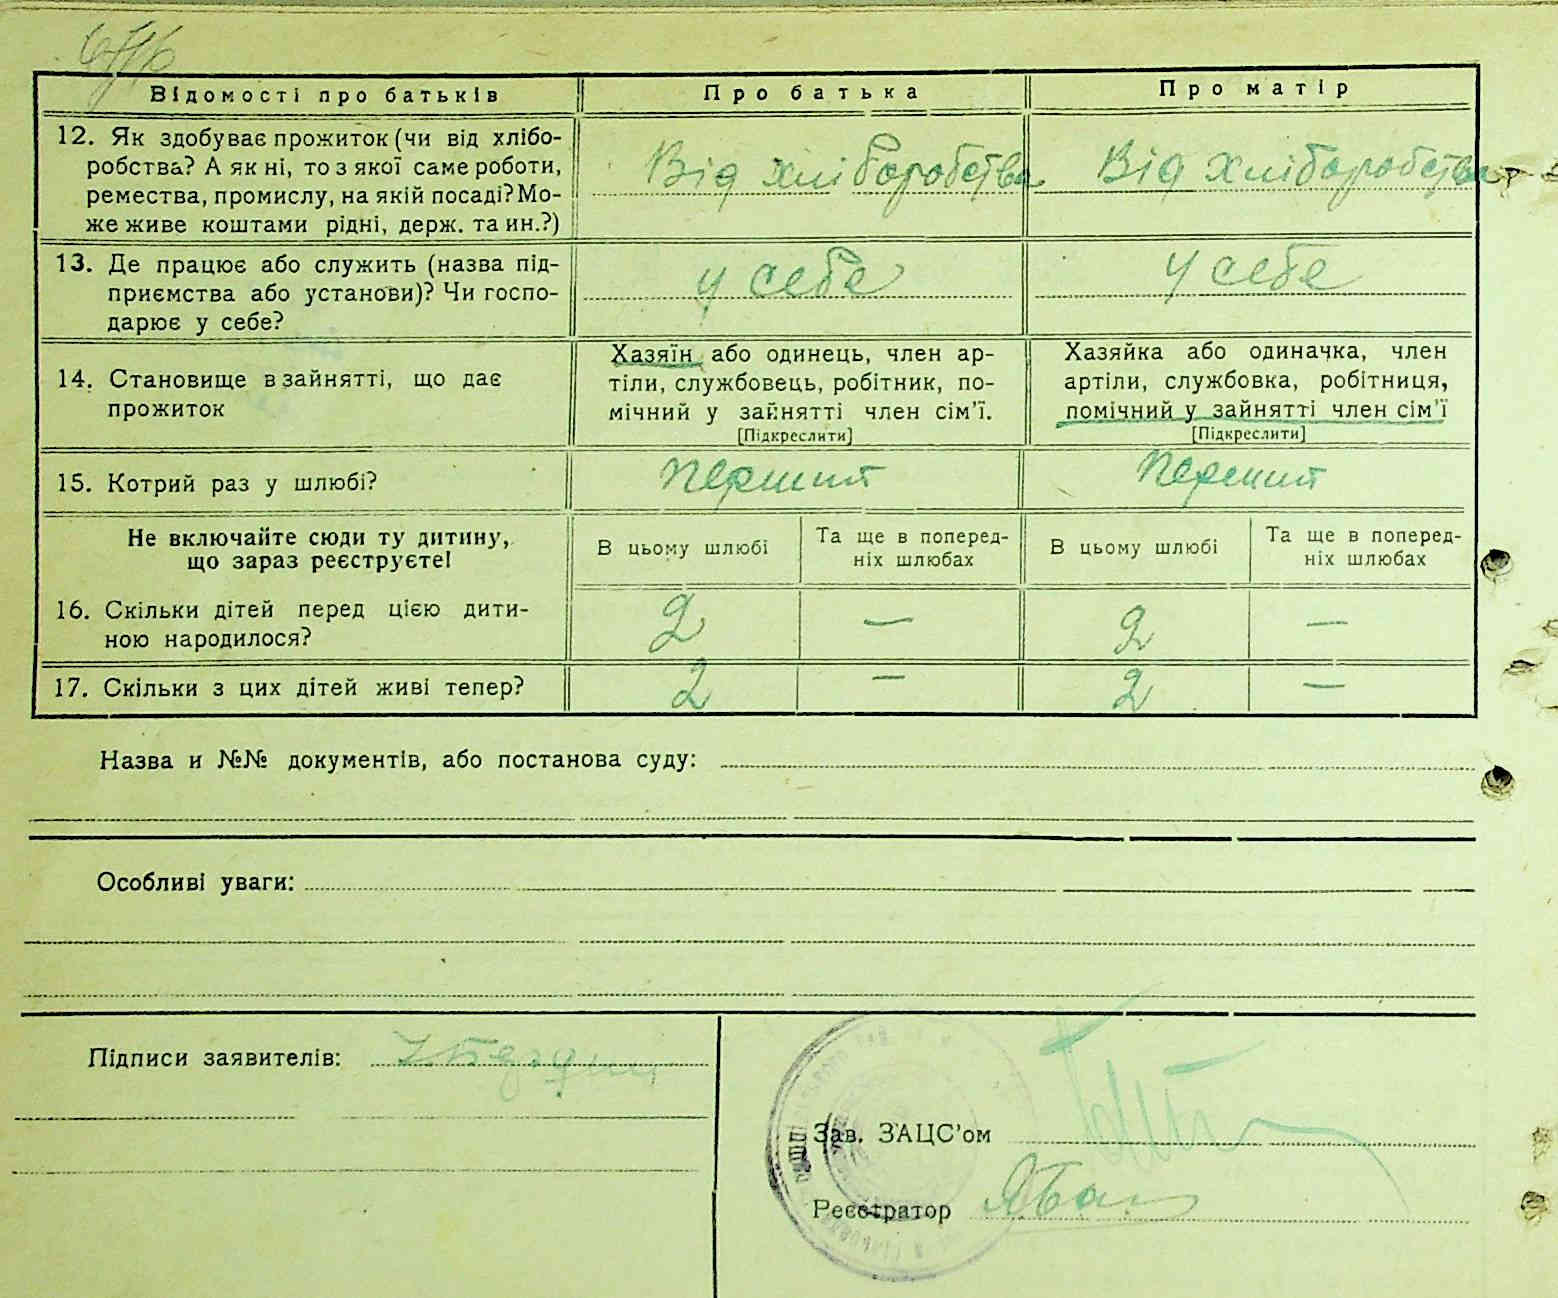 Відомості про батьків
Про батька
Про матір
12. Як здобуває прожиток (чи від хлібо-
робства? А як ні, то з якої саме роботи,
ремества, промислу, на якій посаді? Мо-
же живе коштами рідні, держ. та ин.?)
Від хліборобства
Від хліборобства
13. Де працює або служить (назва під-
приємства або установи)? Чи госпо-
дарює у себе?
у себе
у себе
14. Становище в зайнятті, що дає
прожиток
Хазяїн або одинець, член ар-
тіли, службовець, робітник, по-
мічний у зайнятті член сім'ї.
[Підкреслити]
Хазяйка або одиначка, член
артіли, службовка, робітниця,
помічний у зайнятті член сім'ї
[Підкреслити]
15. Котрий раз у шлюбі?
Перший
Перший
Не включайте сюди ту дитину,
що зараз реєструєте!
В цьому шлюбі
Та ще в поперед-
ніх шлюбах
В цьому шлюбі
Та ще в поперед-
ніх шлюбах
16. Скільки дітей перед цією дити-
ною народилося?
2
—
2
—
17. Скільки з цих дітей живі тепер?
2
—
2
—
Назва и №№ документів, або постанова суду:
Особливі уваги:
Підписи заявителів:
Зав. ЗАЦС'ом
Реєстратор